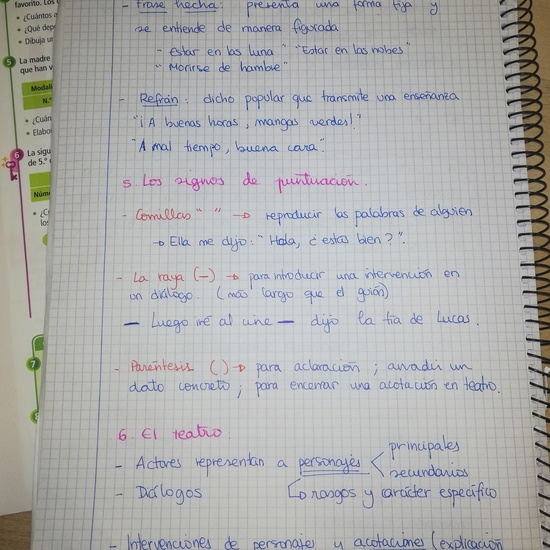 favorito. Los
• ¿Cuántos
• ¿Qué dep
• Dibuja u
5 La madre
que han v
Modali
N.º
• ¿Cuán
• Elabo
6 La sigu
de 5.º
Núm
• ¿C
los
7
8
- Frase hecha: presenta una forma fija y
se entiende de manera figurada
- "Estar en las luna" "Estar en las nubes"
"Morirse de hambre"
- Refrán: dicho popular que transmite una enseñanza
"¡A buenas horas, mangas verdes!"
"A mal tiempo, buena cara".
5. Los signos de puntuación.
- Comillas " " → reproducir las palabras de alguien
→ Ella me dijo: "Hola, ¿estas bien?".
- La raya (—) → para introducir una intervención en
un diálogo. (más largo que el guión)
— Luego iré al cine — dijo la tía de Lucas.
- Paréntesis ( ) → para aclaración; anadir un
dato concreto; para encerrar una acotación en teatro.
6. El teatro.
- Actores representan a personajes < principales
secundarios
- Diálogos ↳ rasgos y carácter específico
- Intervenciones de personajes y acotaciones (explicación